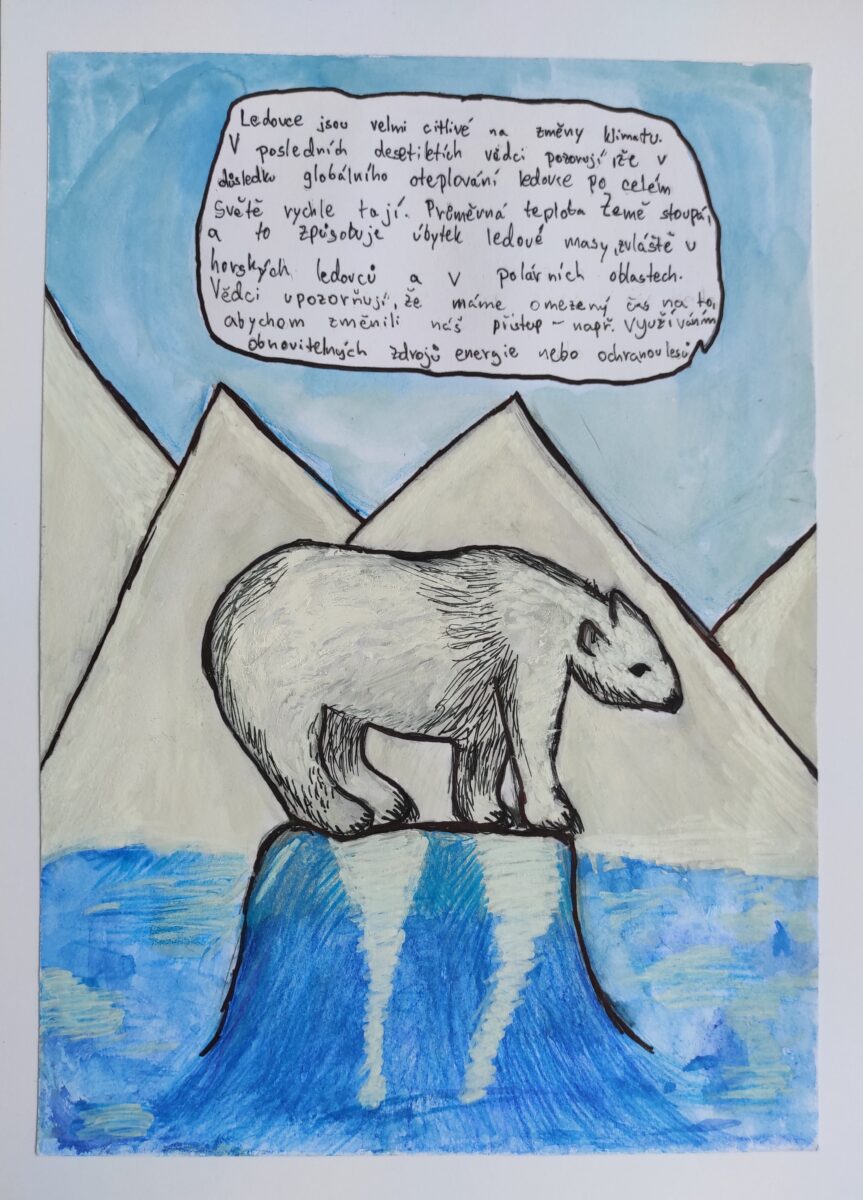 Ledovce jsou velmi citlivé na změny klimatu.
V posledních desetiletích vědci pozorují, že v
důsledku globálního oteplování ledovce po celém
Světě rychle tají. Průměvná teplota Země stoupá,
a to způsobuje úbytek ledové masy, zvláště u
horských ledovců a v polárních oblastech.
Vědci upozorňují, že máme omezený čas na to,
abychom změnili náš přístup – např. Využíváním
obnovitelných zdrojů energie nebo ochranou lesů